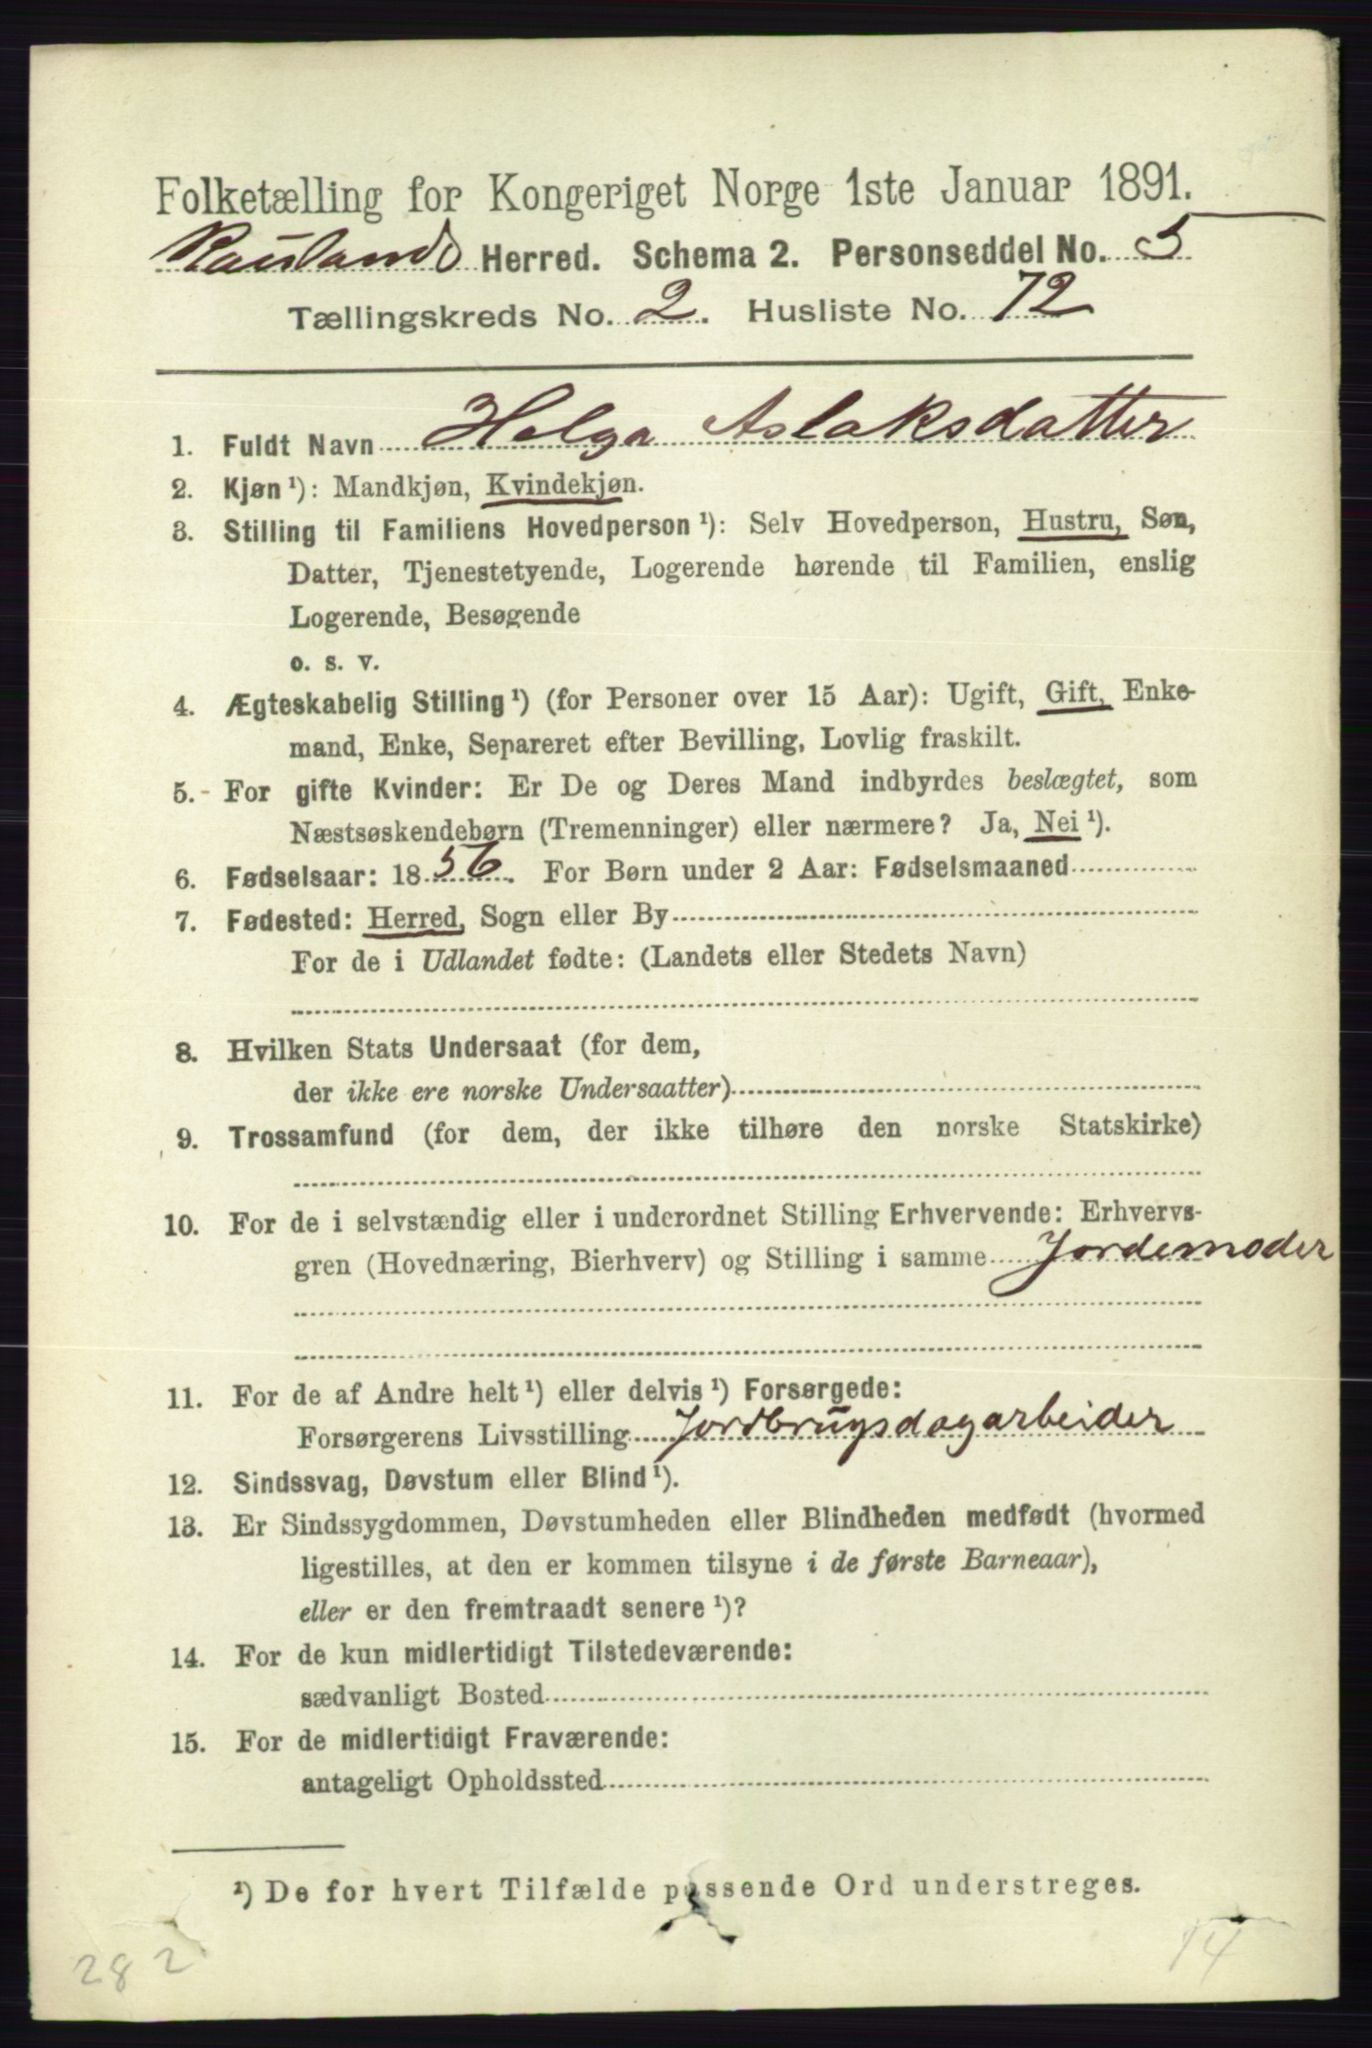 Folketælling for Kongeriget Norge 1ste Januar 1891.
Raulands Herred. Schema 2. Personseddel No. 5
Tællingskreds No. 2. Husliste No. 72
1. Fuldt Navn Helga Aslaksdatter
2. Kjøn ¹): Mandkjøn, Kvindekjøn.
3. Stilling til Familiens Hovedperson ¹): Selv Hovedperson, Hustru, Søn,
Datter, Tjenestetyende, Logerende hørende til Familien, enslig
Logerende, Besøgende
o. s. v.
4. Ægteskabelig Stilling ¹) (for Personer over 15 Aar): Ugift, Gift, Enke-
mand, Enke, Separeret efter Bevilling, Lovlig fraskilt.
5. For gifte Kvinder: Er De og Deres Mand indbyrdes beslægtet, som
Næstsøskendebørn (Tremenninger) eller nærmere? Ja, Nei ¹).
6. Fødselsaar: 1856. For Børn under 2 Aar: Fødselsmaaned
7. Fødested: Herred, Sogn eller By
For de i Udlandet fødte: (Landets eller Stedets Navn)
8. Hvilken Stats Undersaat (for dem,
der ikke ere norske Undersaatter)
9. Trossamfund (for dem, der ikke tilhøre den norske Statskirke)
10. For de i selvstændig eller i underordnet Stilling Erhvervende: Erhvervs-
gren (Hovednæring, Bierhverv) og Stilling i samme Jordemoder
11. For de af Andre helt ¹) eller delvis ¹) Forsørgede:
Forsørgerens Livsstilling Jordbrugsdagarbeider
12. Sindssvag, Døvstum eller Blind ¹).
13. Er Sindssygdommen, Døvstumheden eller Blindheden medfødt (hvormed
ligestilles, at den er kommen tilsyne i de første Barneaar),
eller er den fremtraadt senere ¹)?
14. For de kun midlertidigt Tilstedeværende:
sædvanligt Bosted
15. For de midlertidigt Fraværende:
antageligt Opholdssted
¹) De for hvert Tilfælde passende Ord understreges.
282
14